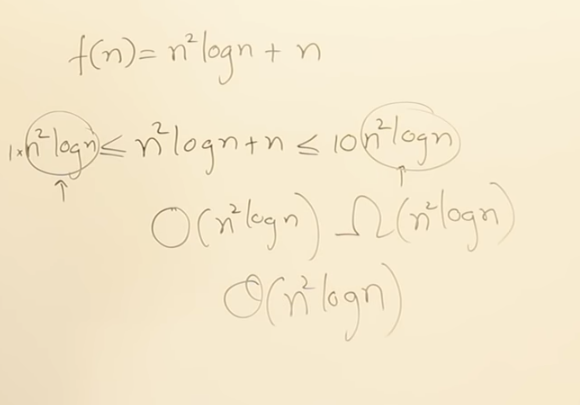 f(n) = n²logn + n
1×n²logn ≤ n²logn+n ≤ 10n²logn
O(n²logn) Ω(n²logn)
Θ(n²logn)